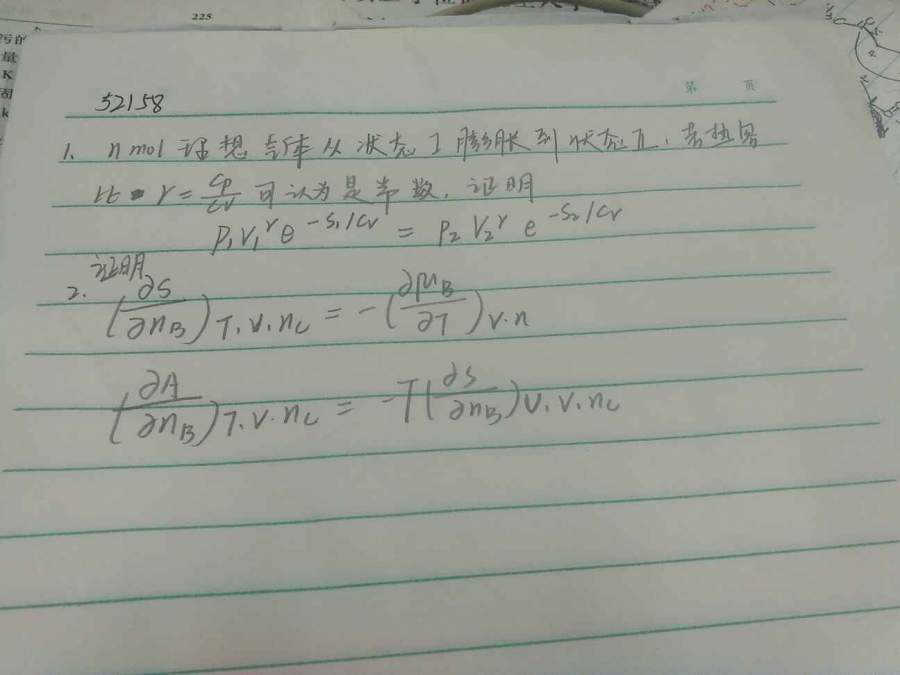 225
污的
量
K
固
k
第 页
52158
1. n mol 理想气体从状态I膨胀到状态II,若热容
比 γ = Cp/Cv 可认为是常数,证明
P₁V₁^γ e^(-S₁/Cv) = P₂V₂^γ e^(-S₂/Cv)
2. 证明
(∂S/∂n_B)_T.V.n_C = -(∂μ_B/∂T)_V.n
(∂A/∂n_B)_T.V.n_C = -T(∂S/∂n_B)_U.V.n_C